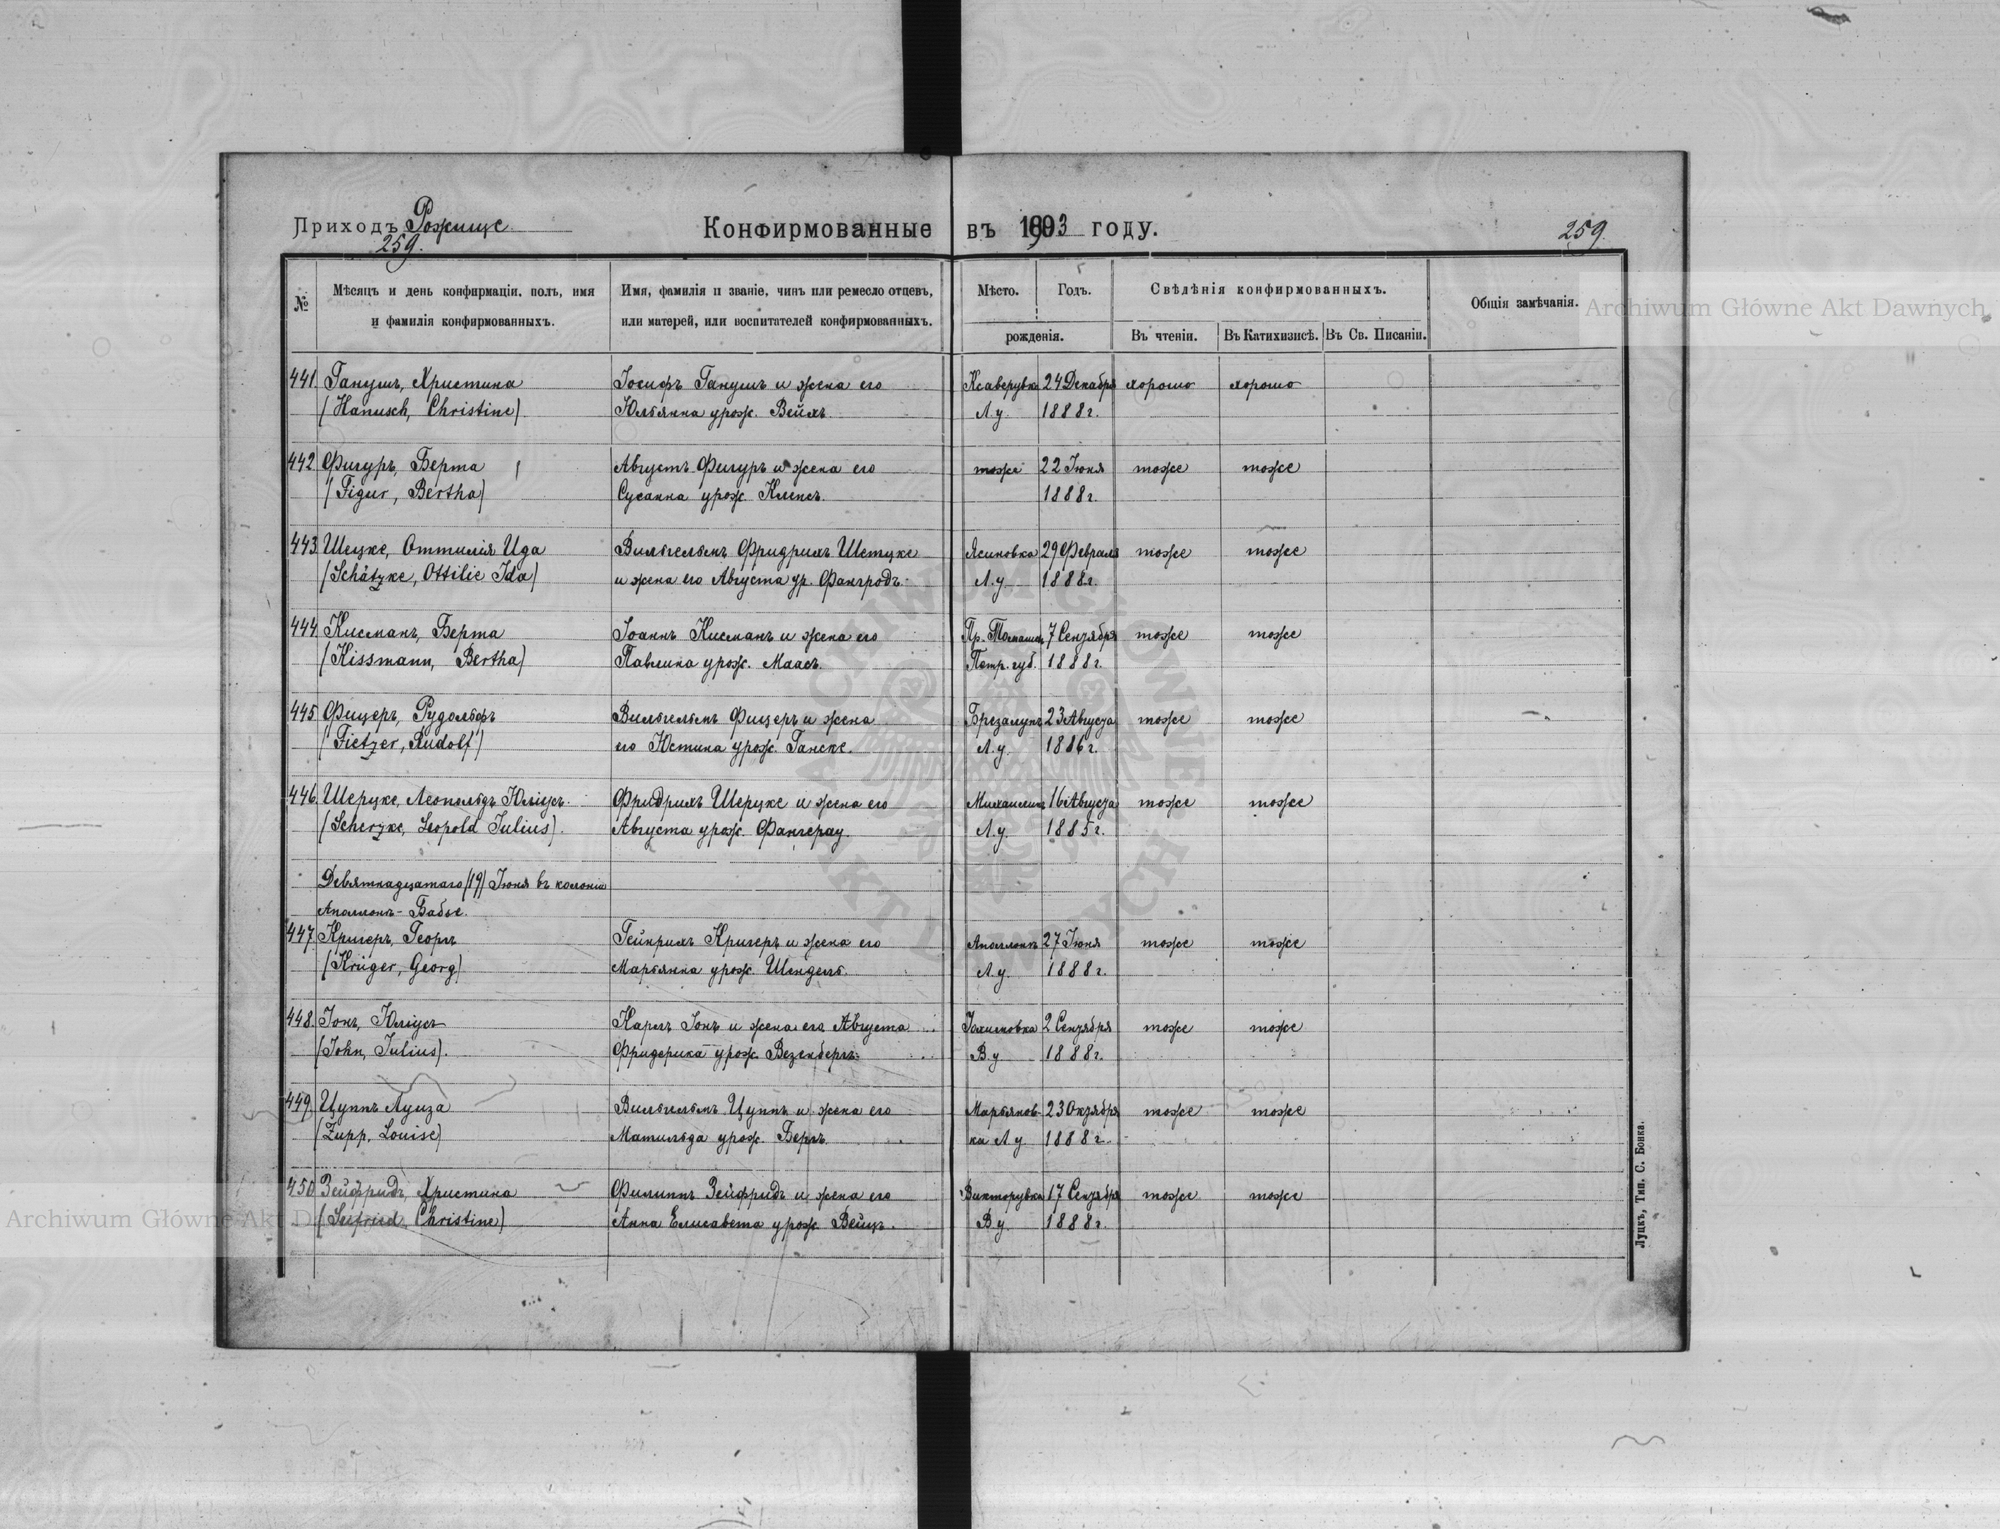 Приходъ Рожище
259.
Конфирмованные въ 1903 году.
259.
№
Мѣсяцъ и день конфирмаціи, полъ, имя
и фамилія конфирмованныхъ.
Имя, фамилія и званіе, чинъ или ремесло отцевъ,
или матерей, или воспитателей конфирмованныхъ.
Мѣсто. Годъ.
рожденія.
Свѣдѣнія конфирмованныхъ.
Въ чтеніи. Въ Катихизисѣ. Въ Св. Писаніи.
Общія замѣчанія.
Archiwum Główne Akt Dawnych
441 Ганушъ, Христина Іосифъ Ганушъ и жена его Ксаверувка 24 Декабря хорошо хорошо
(Hanusch, Christine) Юльянна урож. Вейхъ. Л.у. 1888 г.
442 Фигуръ, Берта Августъ Фигуръ и жена его тоже 22 Іюня тоже тоже
(Figur, Bertha) Сусанна урож. Клемъ. 1888 г.
443 Шецке, Оттилія Ида Вильгельмъ Фридрихъ Шетцке Ясиновка 29 Февраля тоже тоже
(Schätzke, Ottilie Ida) и жена его Августа ур. Фангродъ. Л.у. 1888 г.
444 Кисманъ, Берта Іоаннъ Кисманъ и жена его Пр. Томашев 7 Сентября тоже тоже
(Kissmann, Bertha) Павлина урож. Маасъ. Петр. губ. 1888 г.
445 Фицеръ, Рудольфъ Вильгельмъ Фицеръ и жена Брезалунъ 23 Августа тоже тоже
(Fietzer, Rudolf) его Юстина урож. Ганске. Л.у. 1886 г.
446. Шерцке, Леопольдъ Юліусъ. Фридрихъ Шерцке и жена его Михаилин 16 Августа тоже тоже
(Scherzke, Leopold Julius). Августа урож. Фангерау. Л.у. 1885 г.
Девятнадцатаго (19) Іюня въ колоніи
Аполлонъ-Бабье.
447 Кригеръ, Георгъ Гейнрихъ Кригеръ и жена его Аполлонъ 27 Іюня тоже тоже
(Krüger, Georg) Марьянна урож. Шендель. Л.у. 1888 г.
448. Іонъ, Юліусъ Карлъ Іонъ и жена его Августа 2 Сентября тоже тоже
(John, Julius). Фридерика урож. Везенбергъ. В.у. 1888 г.
449. Цуппъ Луиза Вильгельмъ Цуппъ и жена его Марьянов- 23 Октября тоже тоже
(Zupp, Louise) Матильда урож. Бергъ. ка Л.у. 1888 г.
450 Зейфридъ, Христина Филиппъ Зейфридъ и жена его Викторувка 17 Сентября тоже тоже
(Seifried, Christine) Анна Елисавета урож. Вейцъ. В.у. 1888 г.
Луцкъ, Тип. С. Бонка.
Archiwum Główne Akt Dawnych
ARCHIWUM GŁÓWNE AKT DAWNYCH